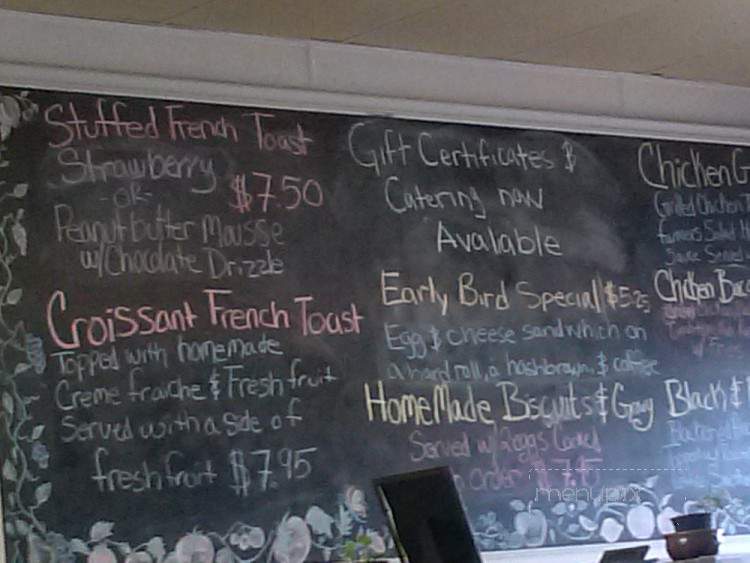 Stuffed French Toast
Strawberry
-OR-
$7.50
Peanut butter Mousse
w/ Chocolate Drizzle
Croissant French Toast
Topped with homemade
Creme fraiche & Fresh fruit
Served with a side of
fresh fruit $7.95
Gift Certificates &
Catering now
Avalable
Early Bird Special $5.25
Egg & cheese sandwhich on
a hard roll, a hashbrown, & coffee
HomeMade Biscuits & Gravy
Served w/ 2 eggs
order
menupix
Chicken
Grilled Chicken
Salad
Sauce Served
Chicken
Black &